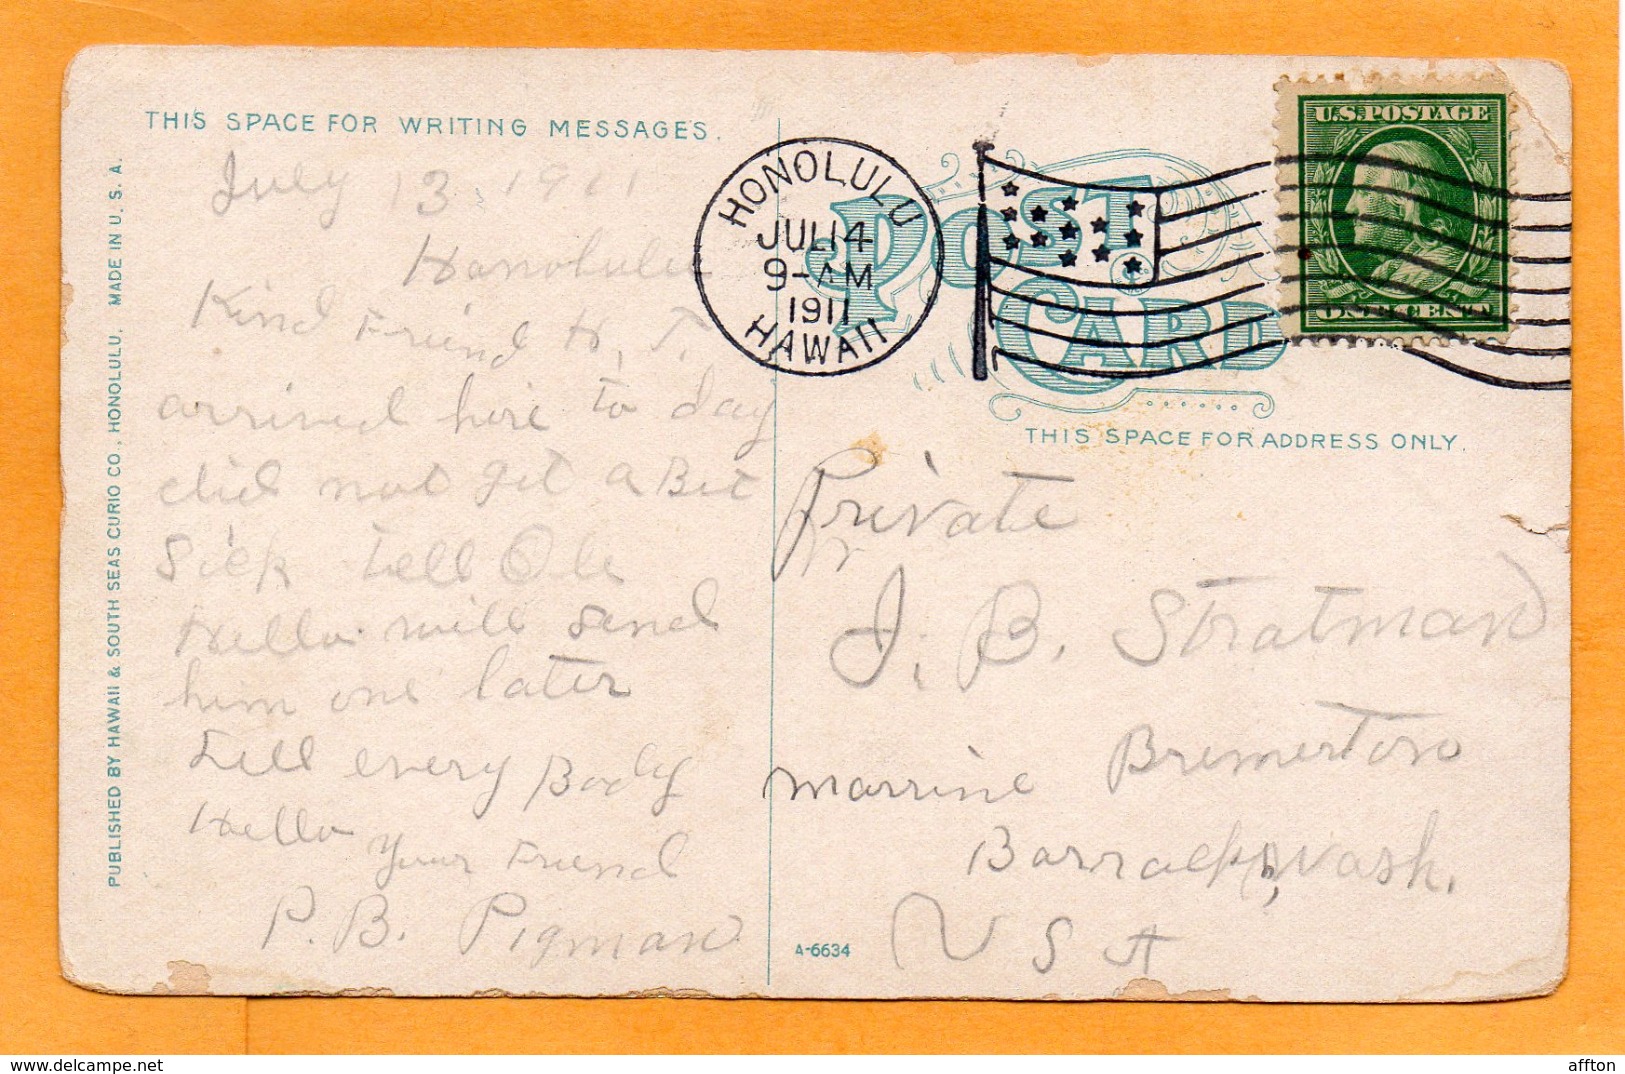 THIS SPACE FOR WRITING MESSAGES.
July 13, 1911
Honolulu
Kind Friend H, T.
arrived here to day
did not get a Bit
Sick tell Ole
Hello will send
him one later
tell every Body
Hello
Your Friend
P. B. Pigman
PUBLISHED BY HAWAII & SOUTH SEAS CURIO CO., HONOLULU. MADE IN U. S. A.
HONOLULU
JUL 14
9-AM
1911
HAWAII
POST CARD
U.S. POSTAGE
ONE CENT
THIS SPACE FOR ADDRESS ONLY.
Private
J. B. Stratman
Bremerton
marrine
Barracks, Wash.
U S A
A-6634
affton